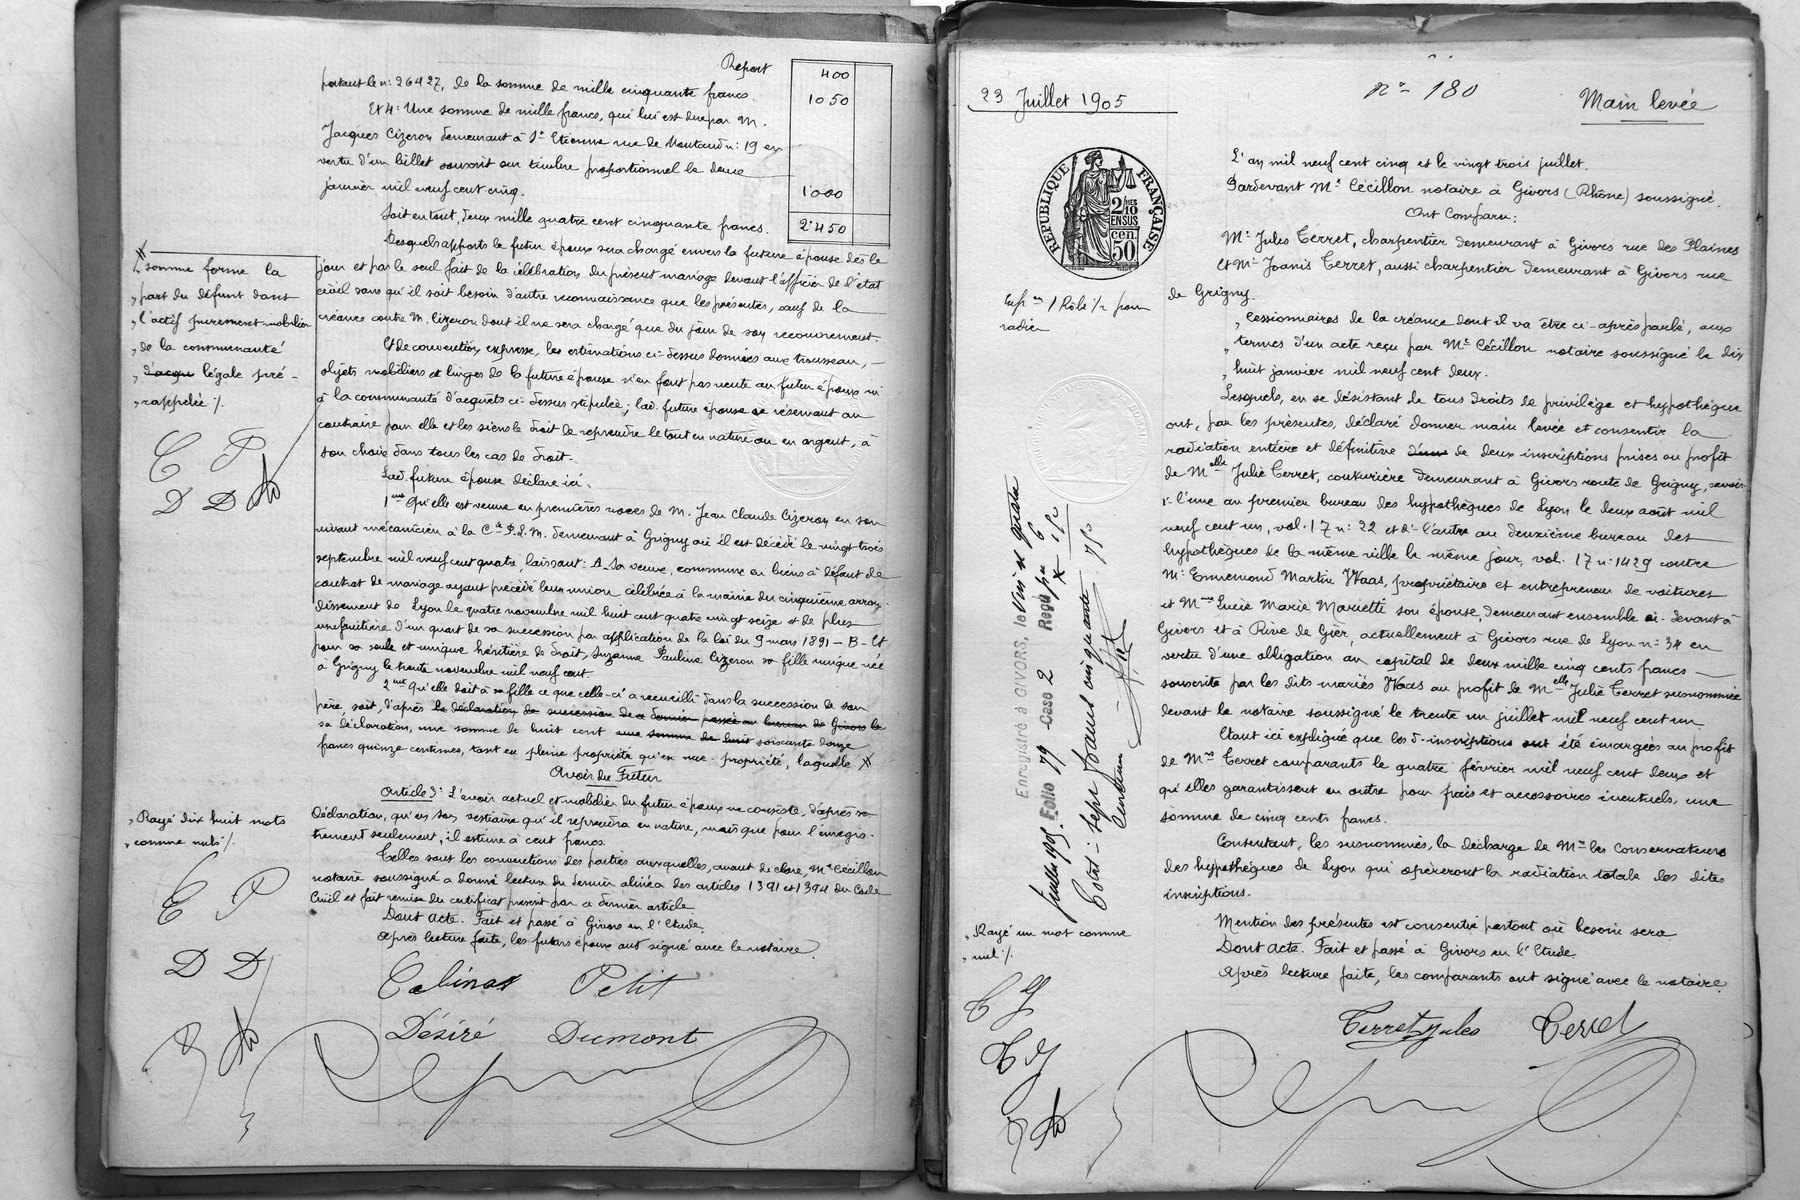 Report
400
portant le n: 26427, de la somme de mille cinquante francs.
1050
Et 4: Une somme de mille francs, qui lui est due par M.
Jacques Cizeron demeurant à St Etienne rue de Montaud n: 19 en
vertu d'un billet souscrit sur timbre proportionnel le deux
janvier mil neuf cent cinq.
1000
Soit en tout, deux mille quatre cent cinquante francs.
2450
Desquels apports le futur époux sera chargé envers la future épouse dès le
jour et par le seul fait de la célébration du présent mariage devant l'officier de l'état
civil sans qu'il soit besoin d'autre reconnaissance que les présentes, sauf de la
créance contre M. Cizeron dont il ne sera chargé que du jour de son recouvrement.
Et de convention expresse, les estimations ci-dessus données aux trousseau,
objets mobiliers et linges de la future épouse n'en font pas vente au futur époux ni
à la communauté d'acquêts ci-dessus stipulée; lad. future épouse se réservant au
contraire pour elle et les siens le droit de reprendre le tout en nature ou en argent, à
son choix dans tous les cas de droit.
Lad. future épouse déclare ici:
1ent Qu'elle est veuve en premières noces de M. Jean Claude Cizeron en son
vivant mécanicien à la Cie P.L.M. demeurant à Grigny où il est décédé le vingt trois
septembre mil neuf cent quatre, laissant: A - Sa veuve, commune en biens à défaut de
contrat de mariage ayant précédé leur union célébrée à la mairie du cinquième arron-
dissement de Lyon le quatre novembre mil huit cent quatre vingt seize et de plus
usufruitière d'un quart de sa succession par application de la loi du 9 mars 1891 - B - Et
pour sa seule et unique héritière de droit, Suzanne Pauline Cizeron sa fille unique née
à Grigny le trente novembre mil neuf cent.
2ent Qu'elle doit à sa fille ce que celle-ci a recueilli dans la succession de son
père, soit, d'après la déclaration de succession de ce dernier passée au bureau de Givors le
sa déclaration, une somme de huit cent une somme de huit soixante douze
francs quinze centimes, tant en pleine propriété qu'en nue-propriété, laquelle X
Avoir du Futur
Article 3: L'avoir actuel et mobilier du futur époux ne consiste, d'après sa
déclaration, qu'en son vestiaire qu'il reprendra en nature, mais que pour l'enregis-
trement seulement, il estime à cent francs.
Telles sont les conventions des parties auxquelles, avant de clore, Me Cécillon
notaire soussigné a donné lecture du dernier alinéa des articles 1391 et 1394 du Code
Civil et fait remise du certificat prescrit par ce dernier article
Dont acte. Fait et passé à Givors en l'Etude,
Après lecture faite, les futurs époux ont signé avec le notaire.
X
somme forme la
part du défunt dans
l'actif purement mobilier
de la communauté
d'acqu légale pré-
rappelée /.
C P
D D
Rayé dix huit mots
comme nuls /.
C P
D D
Petit
Désiré Dumont
23 Juillet 1905
No 180
Main levée
RÉPUBLIQUE FRANÇAISE
2/10
EN SUS
50 cen
L'an mil neuf cent cinq et le vingt trois juillet.
Pardevant Me Cécillon notaire à Givors (Rhône) soussigné.
Ont Comparu:
Mr Jules Terret, charpentier demeurant à Givors rue des Plaines
Et Mr Joanis Terret, aussi charpentier demeurant à Givors rue
de Grigny.
Cessionnaires de la créance dont il va être ci-après parlé, aux
termes d'un acte reçu par Me Cécillon notaire soussigné le dix
huit janvier mil neuf cent deux.
Lesquels, en se désistant de tous droits de privilège et hypothèque
ont, par les présentes, déclaré donner main levée et consentir la
radiation entière et définitive d'une de deux inscriptions prises au profit
de Melle Julie Terret, couturière demeurant à Givors route de Grigny, savoir:
1- l'une au premier bureau des hypothèques de Lyon le deux août mil
neuf cent un, vol. 17 n: 22 et 2- l'autre au deuxième bureau des
hypothèques de la même ville le même jour, vol. 17 n: 1429 contre
Mr Ennemond Martin Waas, propriétaire et entrepreneur de voitures
et Mme Lucie Marie Mariette son épouse, demeurant ensemble ci-devant à
Givors et à Rive de Gier, actuellement à Givors rue de Lyon n: 34 en
vertu d'une obligation au capital de deux mille cinq cents francs
souscrite par les dits mariés Waas au profit de Melle Julie Terret susnommée
devant le notaire soussigné le trente un juillet mil neuf cent un
Etant ici expliqué que les d. inscriptions ont été émargées au profit
de Mrs Terret comparants le quatre février mil neuf cent deux et
qu'elles garantissent en outre pour frais et accessoires éventuels, une
somme de cinq cents francs.
Consentant, les susnommés, la décharge de Mrs les Conservateurs
des hypothèques de Lyon qui opèreront la radiation totale des dites
inscriptions.
Mention des présentes est consentie partout où besoin sera
Dont acte. Fait et passé à Givors en l'Etude
Après lecture faite, les comparants ont signé avec le notaire.
1 Rôle 1/2 pour
radier
Enregistré à GIVORS, le Vingt quatre
juillet 1905. Folio 79 Case 2 Reçu
Total: sept francs cinquante
Centimes
Rayé un mot comme
nul /.
Terret Jules Terret